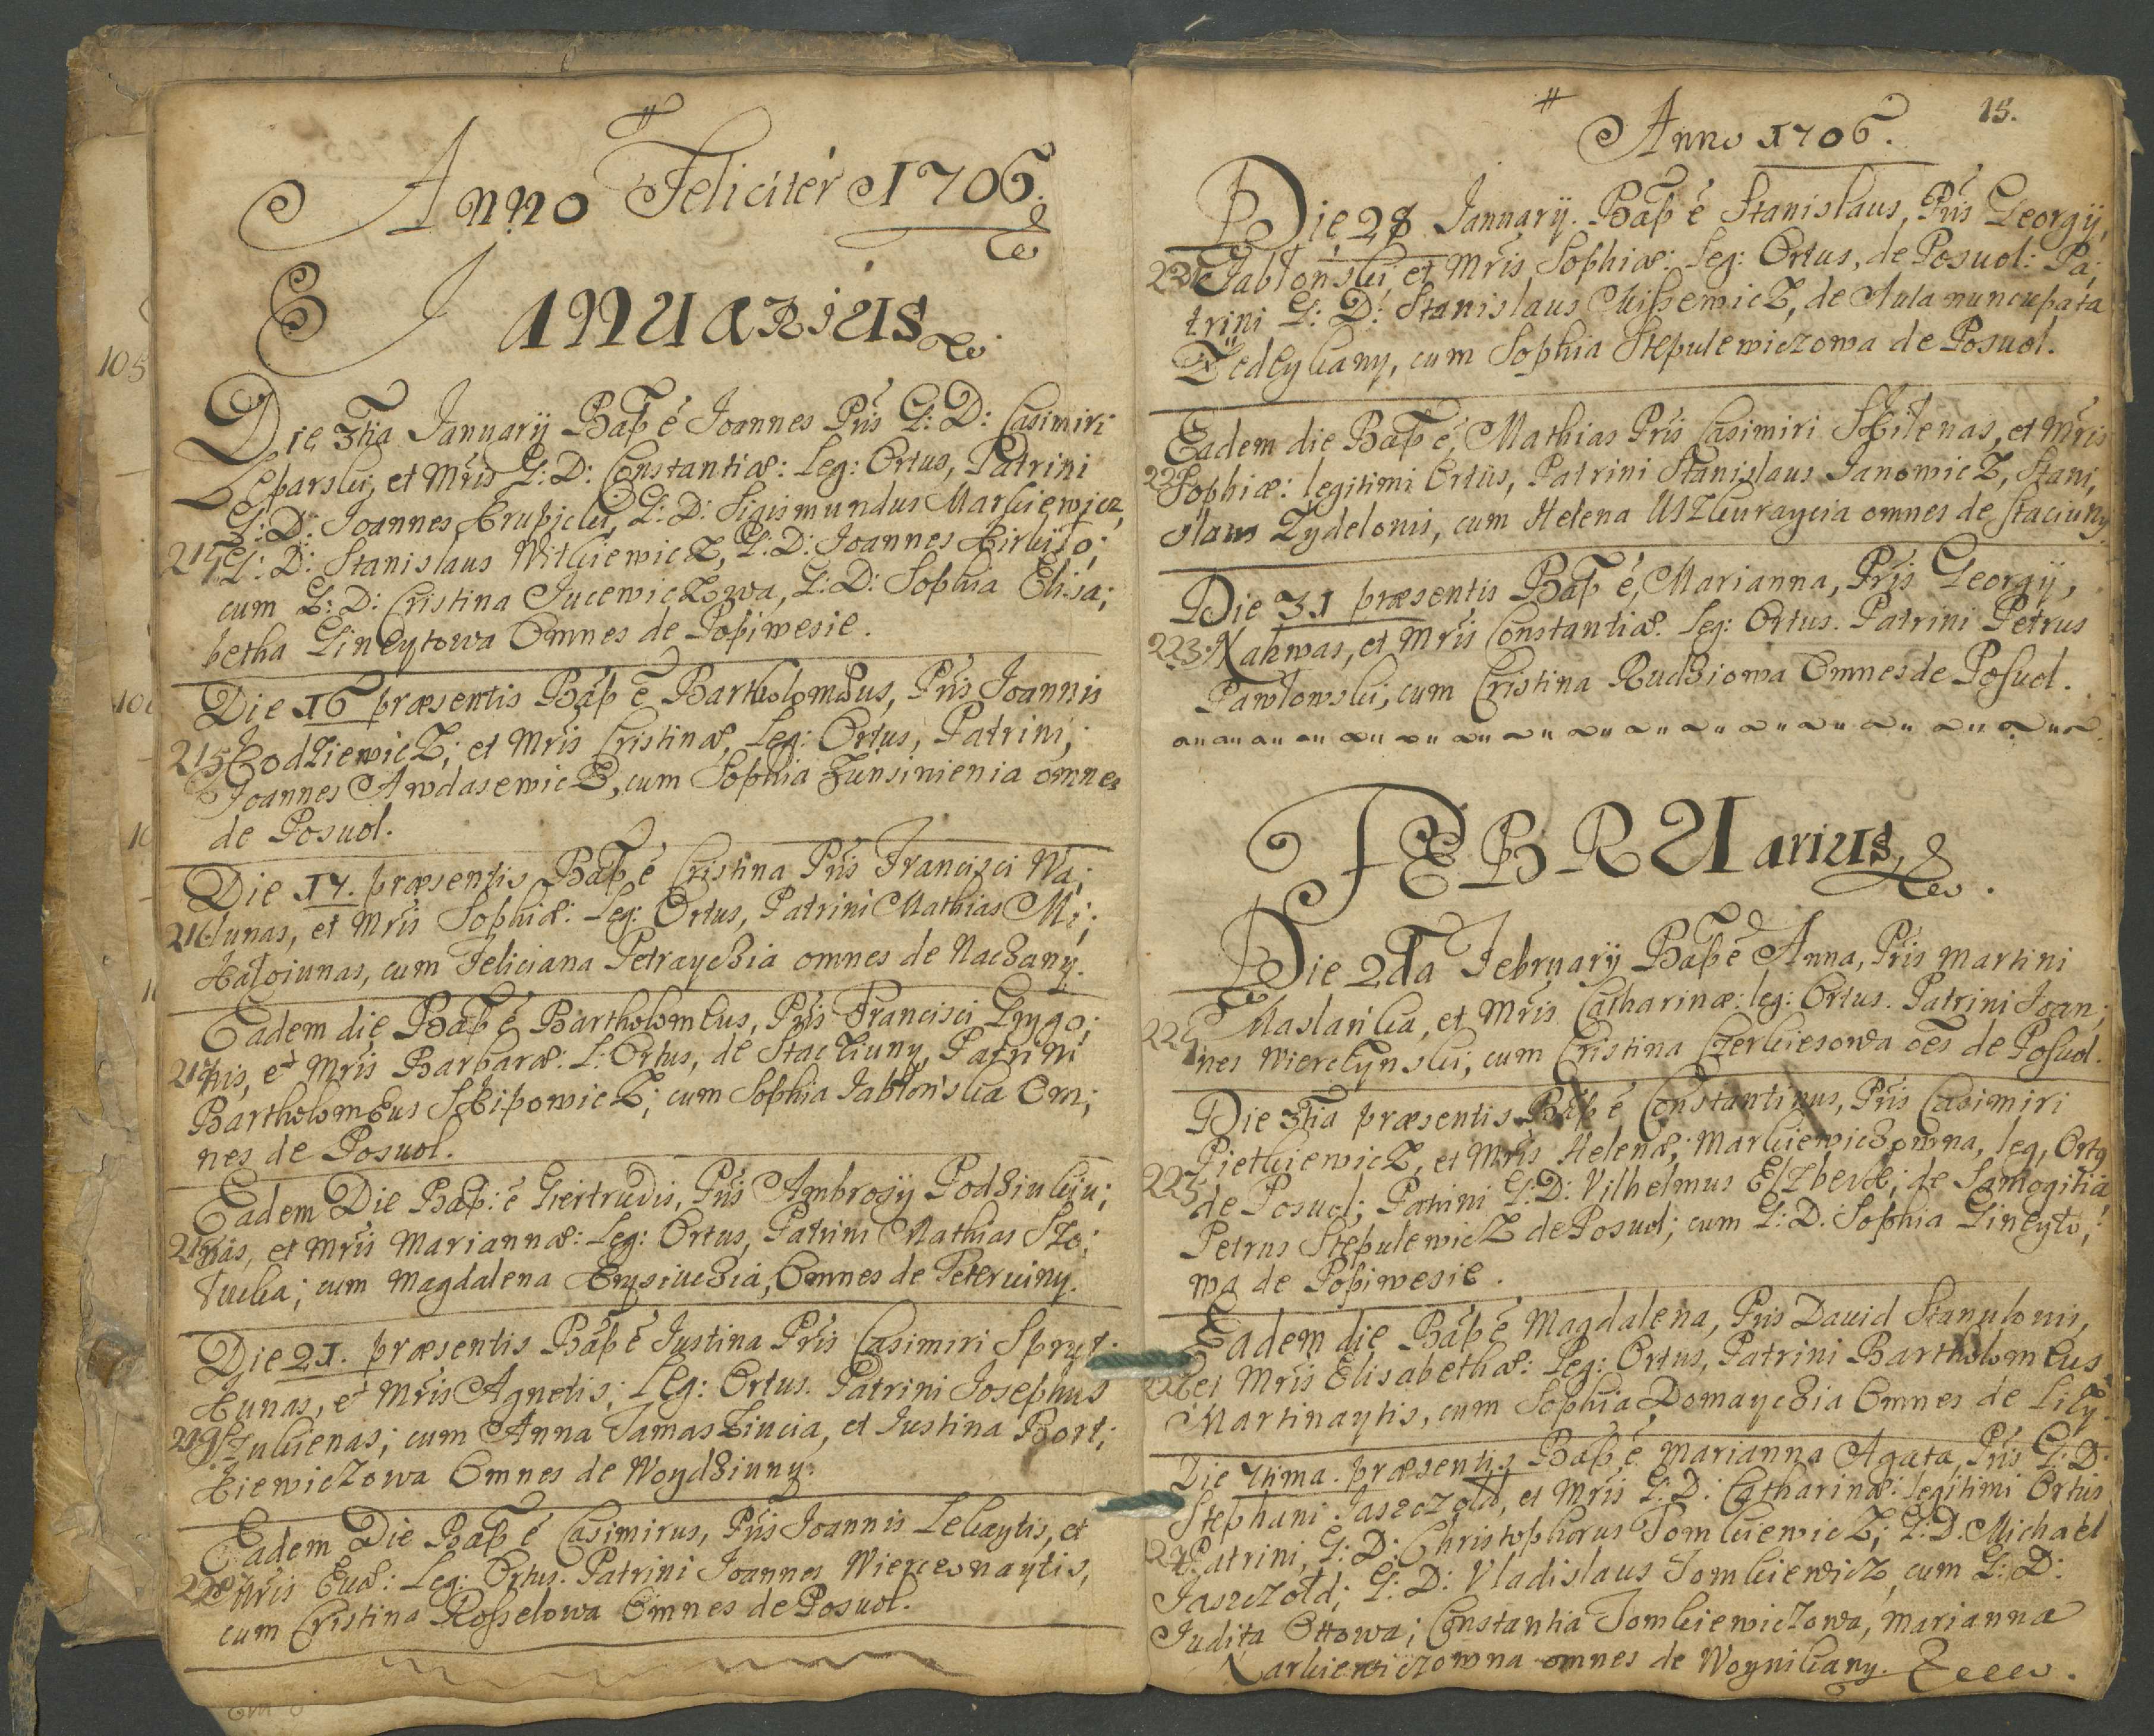 Anno Feliciter 1706.
Januarius
Die 3tia Januarij Bap̃ ẽ Joannes Pr̃is G: D: Casimiri
Leparski, et Mr̃is G: D: Constantiæ: Leg: Ortus, Patrini
G: D: Joannes Krupicki, G: D: Sigismundus Markiewicz,
214 G: D: Stanislaus Witkiewicz, G: D: Joannes
cum G: D: Cristina Jucewiczowa, G: D: Sophia Elisa;
betha Gineytowa Omnes de Popiwesie.
Die 16 præsentis Bap̃ ẽ Bartholomæus, Pr̃is Joannis
215 Kodziewicz; et Mr̃is Cristinæ, Leg: Ortus, Patrini,
Joannes Awdasewicz, cum Sophia Zunsinienia omnes
de Posuol.
Die 17. præsentis Bap̃ ẽ Cristina Pr̃is Francisci Wa;
216 lunas, et Mr̃is Sophiæ: Leg: Ortus, Patrini Mathias Mi;
kałoiunas, cum Feliciana Petraydzia omnes de Naczany.
Eadem die Bap̃ ẽ Bartholomeus, Pr̃is Francisci Grygo;
217 nis, et Mr̃is Barbaræ: L: Ortus, de Stacziuny, Patrini
Bartholomeus Skipowicz; cum Sophia Jabłońska Om;
nes de Posuol.
Eadem Die Bap̃: ẽ Giertrudis, Pr̃is Ambrosij Podziukiu;
218 nas, et Mr̃is Mariannæ: Leg: Ortus, Patrini Mathias Szo;
łucka; cum Magdalena Krysiudzia, Omnes de Peteruiny.
Die 21. præsentis Bap̃ ẽ Justina Pr̃is Casimiri Sprut;
kunas, et Mr̃is Agnetis; Leg: Ortus. Patrini Josephus
219 Szukienas; cum Anna Tamasziucia, et Justina Bort;
kiewiczowa Omnes de Woydziuny.
Eadem Die Bap̃ ẽ Casimirus, Pr̃is Joannis Lekaytis, et
220 Mr̃is Euæ: Leg: Ortus. Patrini Joannes Wiercesnaytis,
cum Cristina Rosselowa Omnes de Posuol.
15.
Anno 1706.
Die 28 Januarij. Bap̃ ẽ Stanislaus, Pr̃is Georgij,
221 Jabłoński, et Mr̃is Sophiæ: Leg: Ortus, de Posuol: Pa;
trini G: D: Stanislaus Kissewicz, de Aula nuncupata
Zedeykany, cum Sophia Stepulewiczowa de Posuol.
Eadem die Bap̃ ẽ, Mathias Pr̃is Casimiri Skilenas, et Mr̃is
222 Sophiæ: legitimi Ortus, Patrini Stanislaus Janowicz, Stani,
slaus Zydelonis, cum Helena Uszkuraycia omnes de Staciuny.
Die 31 præsentis Bap̃ ẽ, Marianna, Pr̃is Georgij,
223. Nakwas, et Mr̃is Constantiæ. Leg: Ortus. Patrini Petrus
Pawłowski, cum Cristina Rudziowa Omnes de Posuol.
FEBRUarius
Die 2da Februarij Bap̃ ẽ Anna, Pr̃is Martini
Maslańka, et Mr̃is Catharinæ: leg: Ortus. Patrini Joan;
224 nes Wierczynski; cum Cristina Czerkiesowa oẽs de Posuol.
Die 3tia præsentis Bap̃ ẽ Constantinus, Pr̃is Casimiri
Pietkiewicz, et Mr̃is Helenæ; Markiewiczowna, leg, Ortq
225 de Posuol; Patrini G: D: Vilhelmus de Samogitia,
Petrus Stepulewicz de Posuol; cum G: D. Sophia Gineyto;
wa de Popiwesie.
Eadem die Bap̃ ẽ Magdalena, Pr̃is Dauid Stanulonis,
226 et Mr̃is Elisabethæ: Leg: Ortus, Patrini Bartholomeus
Martinaytis, cum Sophia Domaydzia Omnes de
Die 7tima. præsentis Bap̃ ẽ Marianna Agata, Pr̃is G: D:
Stephani Jaszczołd, et Mr̃is G: D: Catharinæ: legitimi Ortus
227 Patrini, G: D: Christophorus Tomkiewicz; G: D. Michaël
Jaszczołd; G: D: Vladislaus Tomkiewicz, cum G: D:
Judita Ottowa; Constantia Tomkiewiczowa, Marianna
Narkiewiczowna omnes de Woynikany.